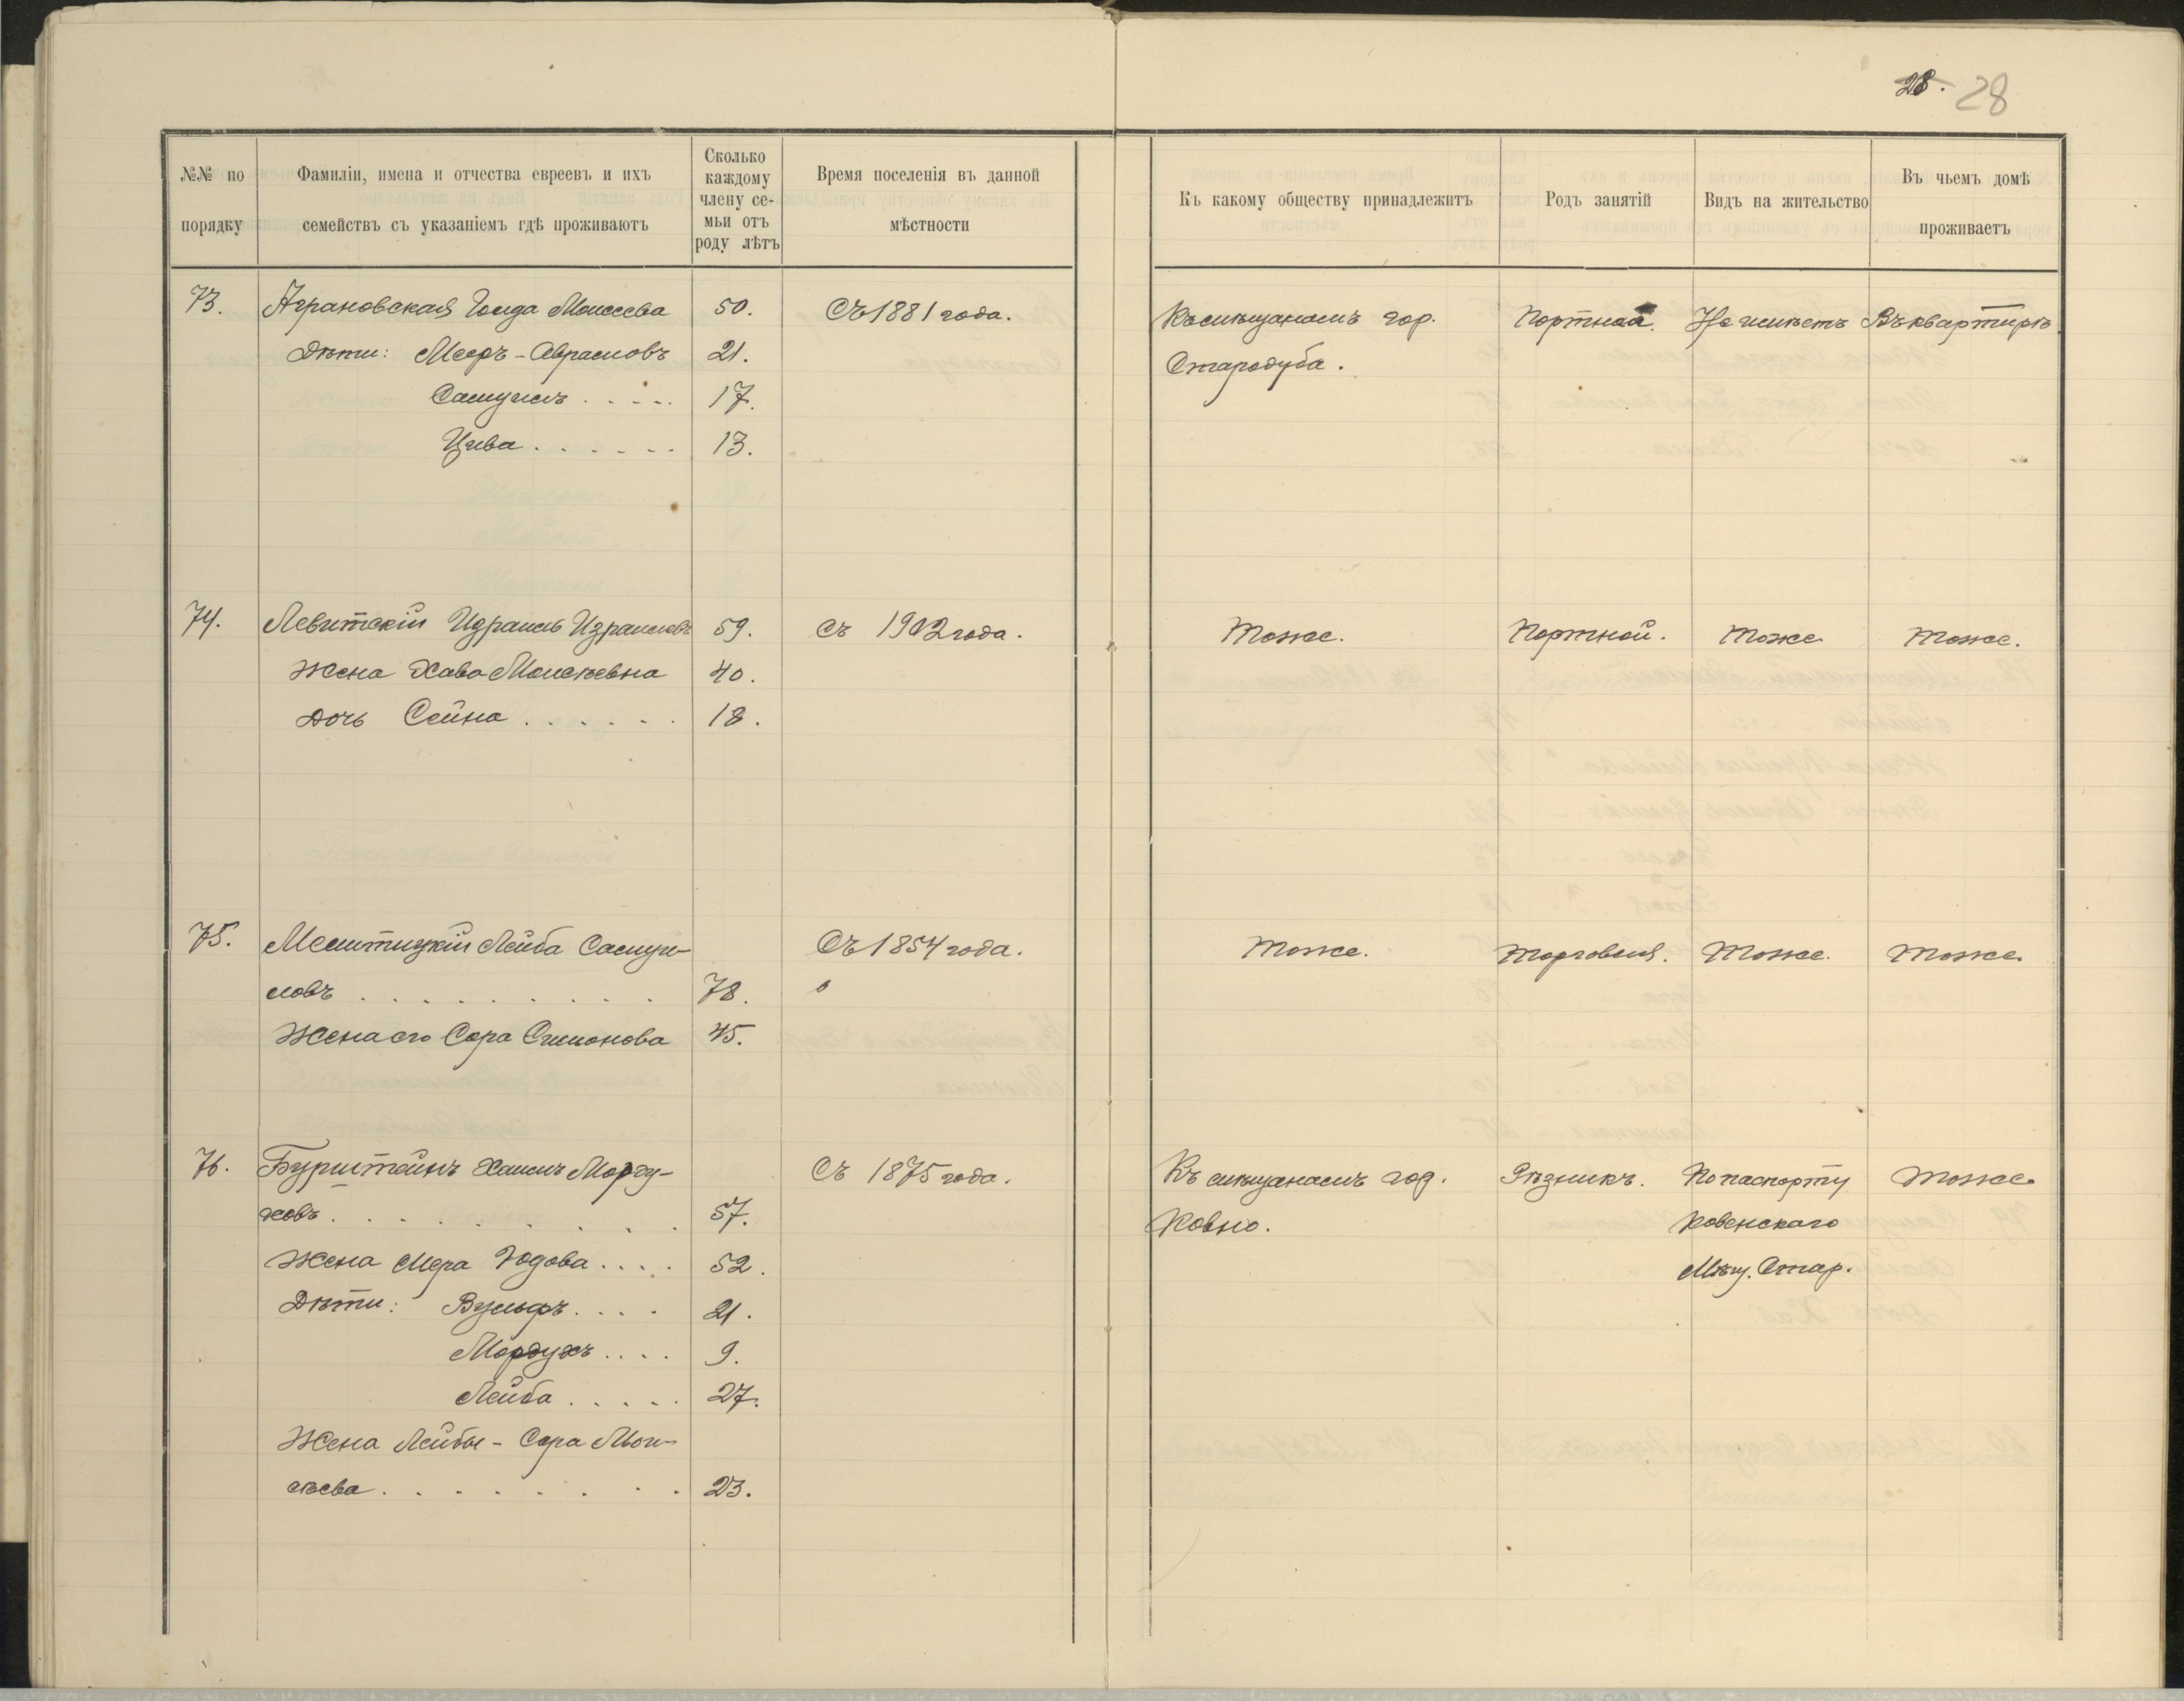 28. 28
№№ по
порядку
Фамиліи, имена и отчества евреевъ и ихъ
семействъ съ указаніемъ гдѣ проживаютъ
Сколько
каждому
члену се-
мьи отъ
роду лѣтъ
Время поселенія въ данной
мѣстности
Къ какому обществу принадлежитъ
Родъ занятій
Видъ на жительство
Въ чьемъ домѣ
проживаетъ
73. Аграновская Гоида Моисеева 50. Съ 1881 года. Къ мѣщанамъ гор. Портная. Не имѣетъ Въ квартирѣ
Дѣти: Мееръ-Абрамовъ 21. Стародуба.
Самуилъ . . . . 17.
Цива . . . . . . 13.
74. Левитскій Израиль Израилевъ 59. Съ 1902 года. Тоже. Портной. Тоже Тоже.
Жена Хава Моисѣевна 40.
Дочь Сейна . . . . . . 18.
75. Лейба Самуи- Съ 1854 года. Тоже. Торговля. Тоже. Тоже.
ловъ . . . . . . . . . 78.
Жена его Сора Симонова 45.
76. Бурштейнъ Хаимъ Морду- Съ 1875 года. Къ мѣщанамъ гор. Рѣзникъ. По паспорту Тоже.
ховъ . . . . . . . . . 57. Ковно. Ковенскаго
Жена Мера Юдова . . . . 52. Мѣщ. Стар.
Дѣти: Вульфъ . . . . 21.
Мордухъ . . . . 9.
Лейба . . . . . 27.
Жена Лейбы - Сора Мои-
сѣева . . . . . . . . 23.